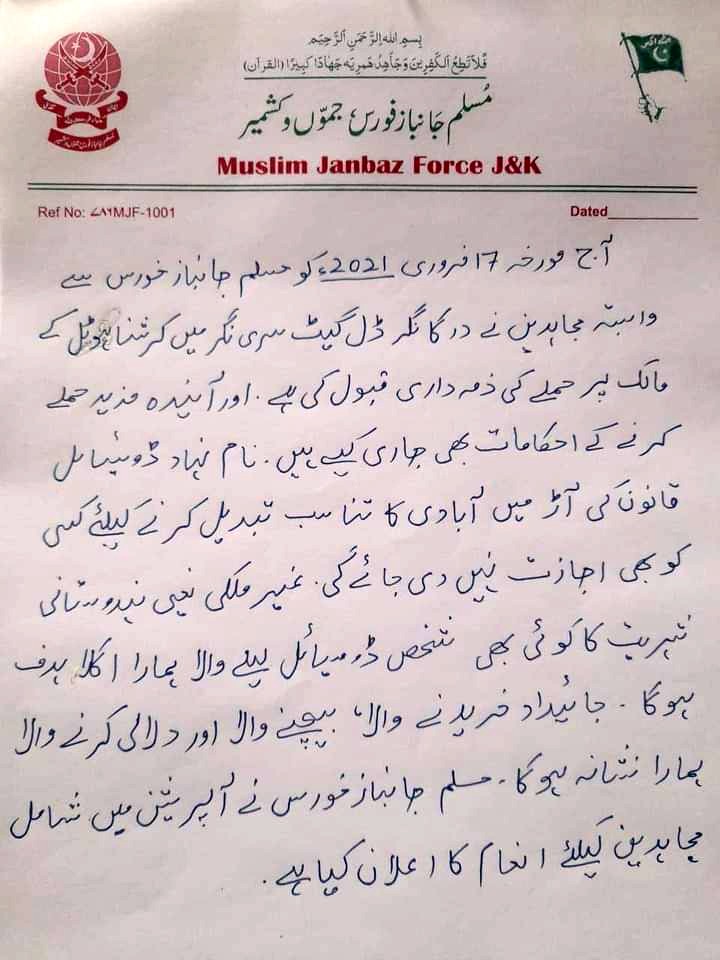 بِسمِ اللہِ الرَّحمٰنِ الرَّحِیم
فَلَا تُطِعِ الْكٰفِرِينَ وَجَاهِدْهُم بِهٖ جِهَادًا كَبِيرًا (القرآن)
مُسلم جَانباز فورس جمّوں و کشمیر
Muslim Janbaz Force J&K
Ref No: ۷۸۶MJF-1001
Dated
آج مورخہ 17 فروری 2021ء کو مسلم جانباز فورس سے
وابستہ مجاہدین نے درگا نگر ڈل گیٹ سری نگر میں کرشنا ہوٹل کے
مالک پر حملے کی ذمہ داری قبول کی ہے۔ اور آئیندہ مزید حملے
کرنے کے احکامات بھی جاری کیے ہیں۔ نام نہاد ڈومیسائل
قانون کی آڑ میں آبادی کا تناسب تبدیل کرنے کیلئے کسی
کو بھی اجازت نہیں دی جائے گی۔ غیر ملکی یعنی ہندوستانی
شہریت کا کوئی بھی شخص ڈومیسائل لینے والا ہمارا اگلا ہدف
ہوگا۔ جائیداد خریدنے والا، بیچنے والا اور دلالی کرنے والا
ہمارا نشانہ ہوگا۔ مسلم جانباز فورس نے آپریشن میں شامل
مجاہدین کیلئے انعام کا اعلان کیا ہے۔